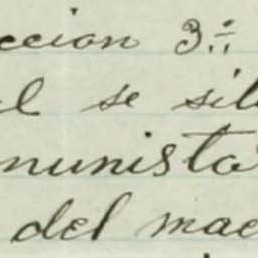 ccion 3ª
l se sit
munista
del mae